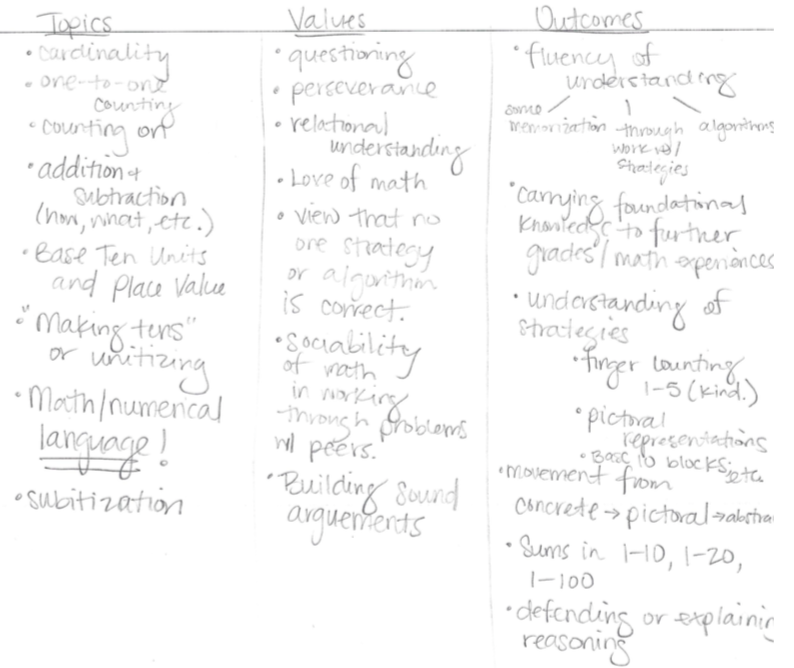 Topics
• cardinality
• one-to-one
counting
• counting on
• addition +
subtraction
(how, what, etc.)
• Base Ten Units
and Place Value
• "Making tens"
or unitizing
• Math/numerical
language!
• subitization
Values
• questioning
• perseverance
• relational
understanding
• Love of math
• view that no
one strategy
or algorithm
is correct.
• Sociability
of math
in working
through problems
w/ peers.
• Building sound
arguements
Outcomes
• fluency of
understanding
some
memorization
through
work w/
strategies
algorithms
• carrying foundational
knowledge to further
grades/math experiences
• understanding of
strategies
• finger counting
1-5 (kind.)
• pictoral
representations
• Base 10 blocks, etc.
• movement from
concrete → pictoral → abstra
• Sums in 1-10, 1-20,
1-100
• defending or explainin
reasoning